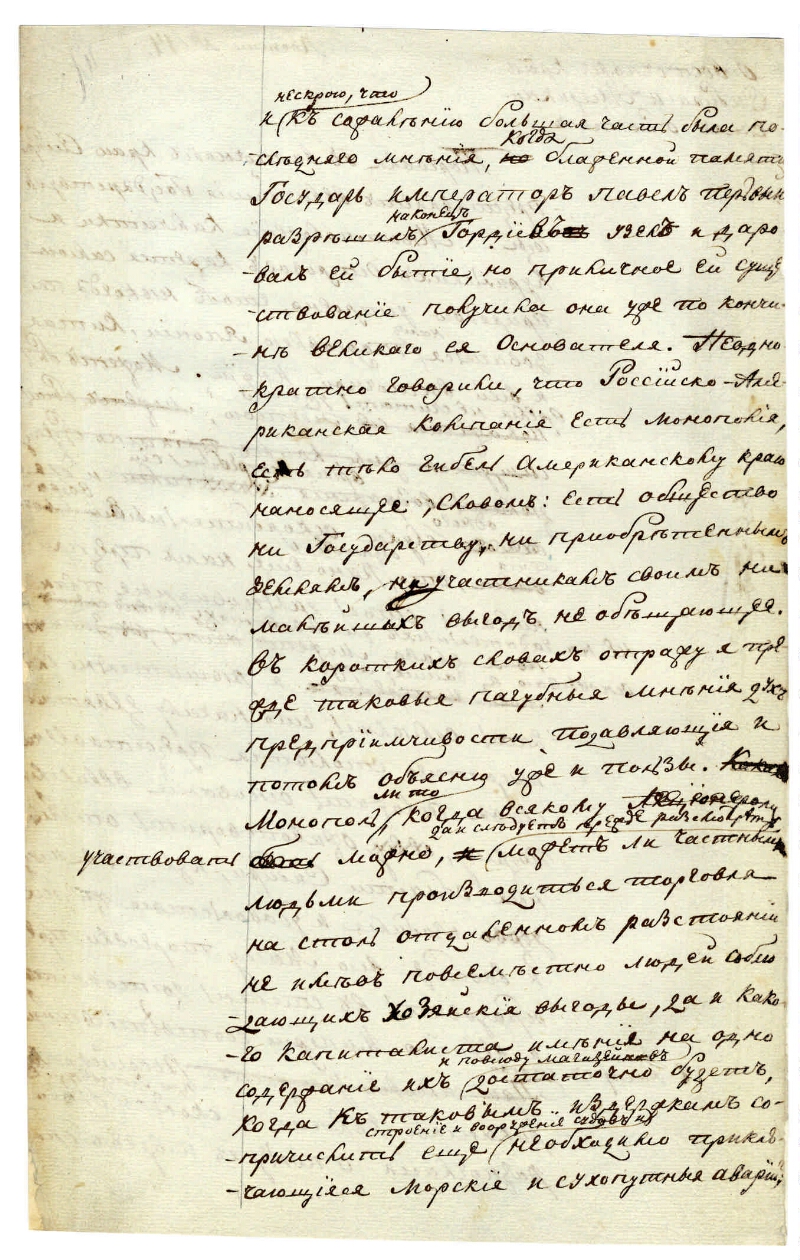 нескрою, что
и (къ сожалѣнію большая часть была по-
когда
-слѣдняго мнѣнія, но блаженной памяти
Государь императоръ павелъ первый
наконецъ
разрѣшилъ Гордіевъ узелъ и даро-
валъ ей бытіе, но приличное ей суще-
-ствованіе получила она уже по кончи-
-нѣ великаго ея Основателя. Неодно-
-кратно говорили, что Россійско-Аме-
риканская Компанія есть монополія,
есть тѣло гибель Американскому краю
наносящее, словомъ: есть общество
ни Государству, ни приобрѣтеннымъ
землямъ, ни участникамъ своимъ ни
малѣйшихъ выгодъ не обѣщающее.
въ короткихъ словахъ отражу я пре-
жде таковыя пагубныя мнѣнія духъ
предпріимчивости подавляющія и
потомъ объясню уже и пользы.
ли то
Монополь, когда всякому
да и слѣдуетъ прежде разсмотрѣть
участвовать можно, (можетъ ли частными
людьми производиться торговля
на столь отдаленномъ разстояніи
не имѣвъ повсемѣстно людей соблю-
-дающихъ хозяйскія выгоды, да и како-
-го капиталиста имѣнія на одно
и повсюду магазейновъ
содержаніе ихъ (достаточно будетъ,
когда къ таковымъ издержкамъ со-
строеніе и вооруженіе судовъ и
-причислить еще (необходимо приклю-
-чающіяся морскіе и сухопутныя аваріи,